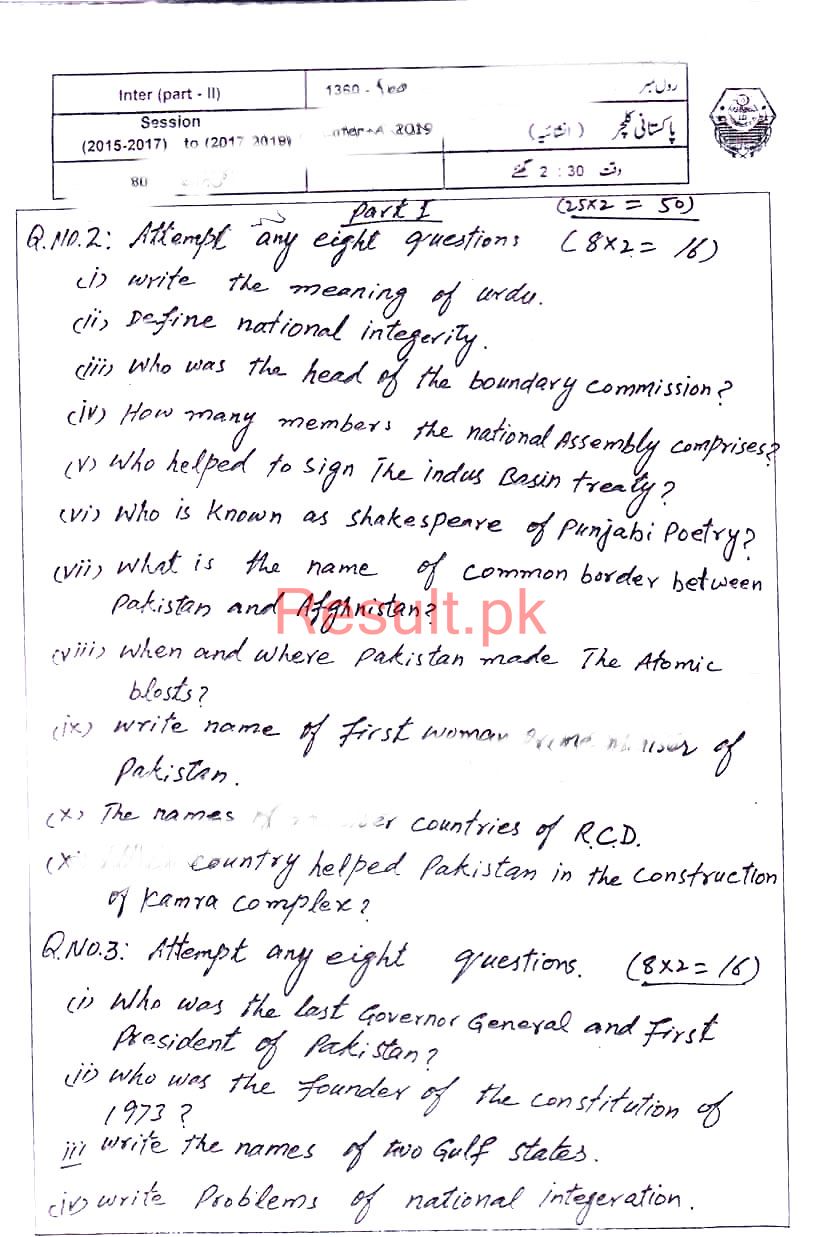 Inter (part - II)
1360 -
رول نمبر
Session
(2015-2017) to (2017 2019)
- A 2019
پاکستانی کلچر (انشائیہ)
80
وقت 2 : 30 گھنٹے
Part I (25x2 = 50)
Q.NO.2: Attempt any eight questions (8x2 = 16)
(i) write the meaning of urdu.
(ii) Define national integerity.
(iii) Who was the head of the boundary commission?
(iv) How many members the national Assembly comprises?
(v) Who helped to sign The indus Basin treaty?
(vi) Who is known as shakespeare of Punjabi Poetry?
(vii) What is the name of common border between
Pakistan and Afghnistan?
Result.pk
(viii) When and where Pakistan made The Atomic
blosts?
(ix) write name of first woman of
Pakistan.
(x) The names countries of R.C.D.
country helped Pakistan in the construction
of Kamra complex?
Q.NO.3: Attempt any eight questions. (8x2 = 16)
(i) Who was the last Governor General and First
President of Pakistan?
(ii) Who was the founder of the constitution of
1973?
iii write the names of two Gulf states.
(iv) write Problems of national integeration.